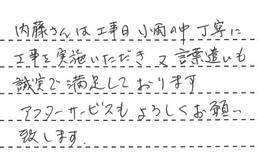 内藤さんは工事日小雨の中丁寧に
工事を実施いただき又言葉遣いも
誠実で満足しております
アフターサービスもよろしくお願い
致します.